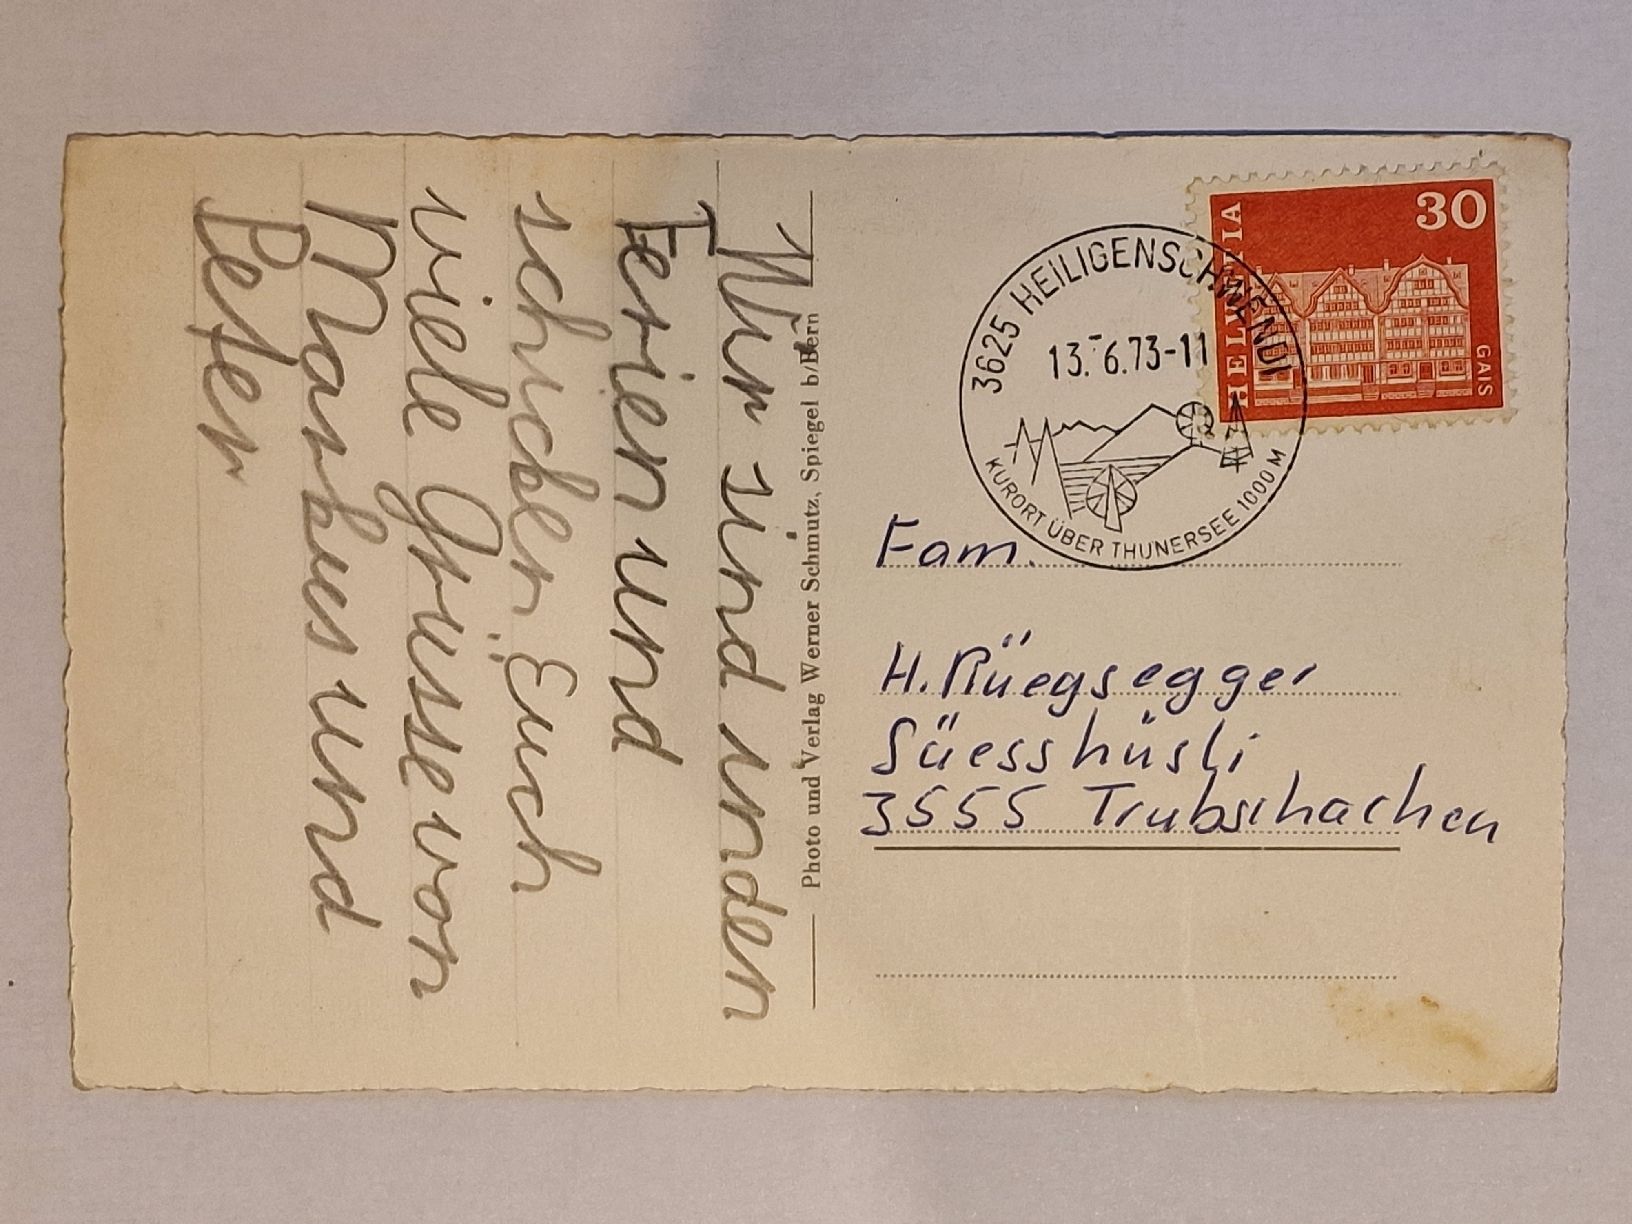 Wir sind in den
Ferien und
schicken Euch
viele Grüsse von
Markus und
Peter
Photo und Verlag Werner Schmutz, Spiegel b/Bern
3625 HEILIGENSCHWENDI
13.-6.73-11
KURORT ÜBER THUNERSEE 1000 M
HELVETIA
30
GAIS
Fam.
H. Rüegsegger
Süesshüsli
3555 Trubschachen